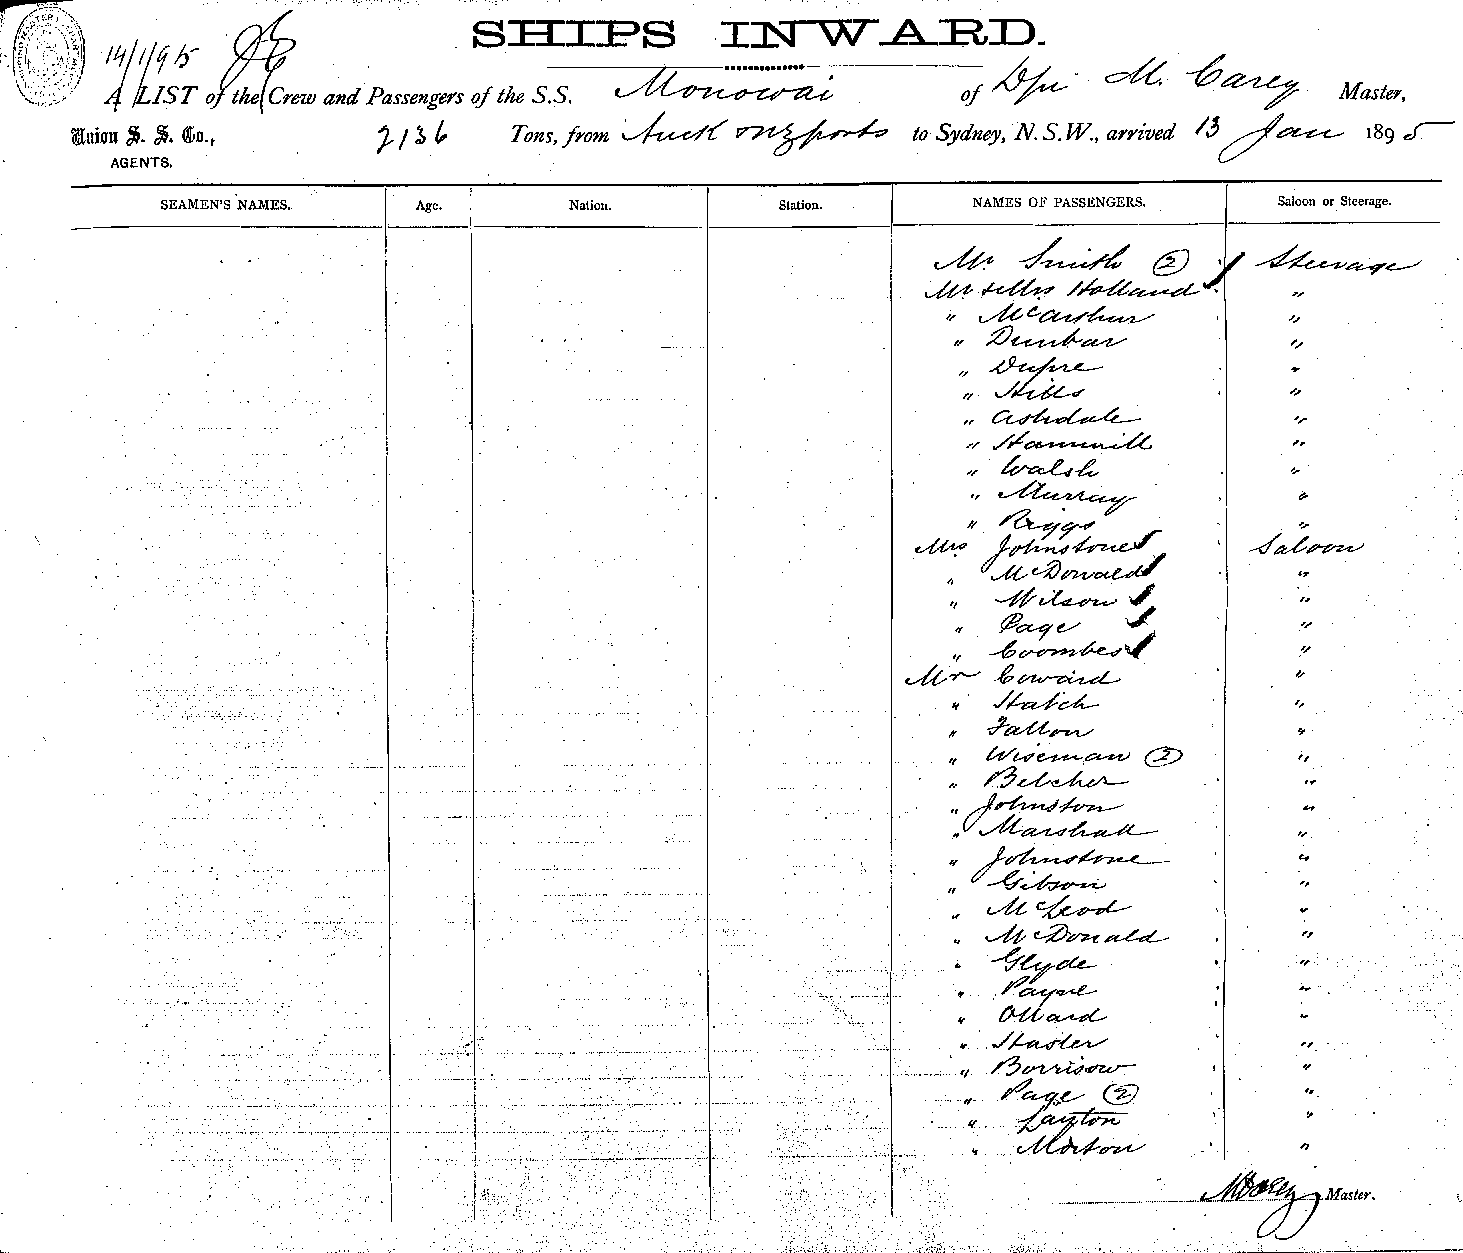 SHIPS INWARD.
14/1/95
A LIST of the Crew and Passengers of the S.S. Monowai of M. Carey Master,
Union S. S. Co., 2136 Tons, from Auck & NZ ports to Sydney, N.S.W., arrived 13 Jan 1895
AGENTS.
SEAMEN'S NAMES. Age. Nation. Station. NAMES OF PASSENGERS. Saloon or Steerage.
Mr Smith (2) Steerage
Mr & Mrs Holland "
" McArthur "
" Dunbar "
" Dupre "
" Hills "
" Ashdale "
" Hammill "
" Walsh "
" Murray "
" Riggs "
Mrs Johnstone Saloon
" McDonald "
" Wilson "
" Page "
" Coombes "
Mr Coward "
" Hatch "
" Fallon "
" Wiseman (2) "
" Belcher "
" Johnston "
" Marshall "
" Johnstone "
" Gibson "
" McLeod "
" McDonald "
" Glyde "
" Payne "
" Ollard "
" Hasler "
" Borrisow "
" Page (2) "
" Layton "
" Morton "
MCarey Master.